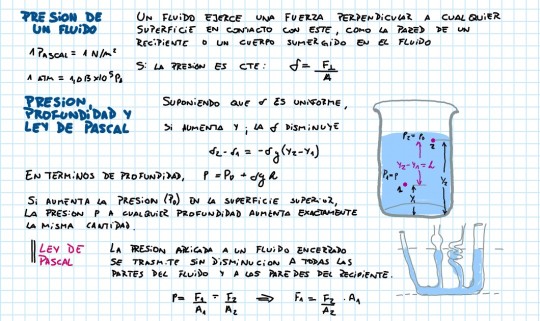 PRESION DE UN FLUIDO
UN FLUIDO EJERCE UNA FUERZA PERPENDICULAR A CUALQUIER
SUPERFICIE EN CONTACTO CON ESTE, COMO LA PARED DE UN
RECIPIENTE O UN CUERPO SUMERGIDO EN EL FLUIDO
1 PASCAL = 1 N/m²
1 ATM = 1,013x10⁵ Pa
SI LA PRESION ES CTE: ρ = F⊥/A
PRESION, PROFUNDIDAD Y LEY DE PASCAL
SUPONIENDO QUE ρ ES UNIFORME,
SI AUMENTA Y, LA ρ DISMINUYE
ρ2 - ρ1 = -ρg(Y2-Y1)
EN TERMINOS DE PROFUNDIDAD, P = P0 + ρg h
SI AUMENTA LA PRESION (P0) EN LA SUPERFICIE SUPERIOR,
LA PRESION P A CUALQUIER PROFUNDIDAD AUMENTA EXACTAMENTE
LA MISMA CANTIDAD.
P2 = P0
2
Y2-Y1 = h
P1 = P
1
Y2
LEY DE PASCAL
LA PRESION APLICADA A UN FLUIDO ENCERRADO
SE TRASMITE SIN DISMINUCION A TODAS LAS
PARTES DEL FLUIDO Y A LAS PAREDES DEL RECIPIENTE.
P = F1/A1 = F2/A2 ⟹ F1 = F2/A2 · A1